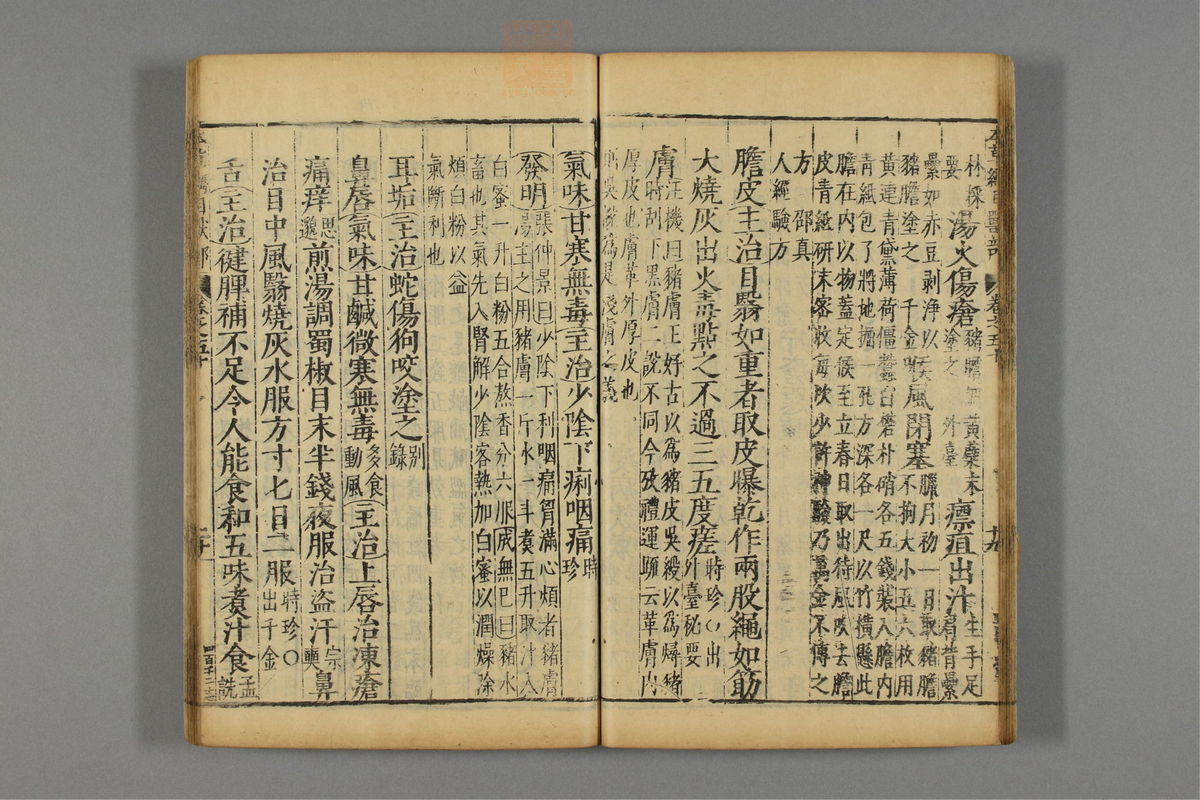 林採
要
湯火傷瘡
豬膽調黃蘗末
塗之 外臺
瘭疽出汁
生手足
肩背纍
纍如赤豆剥淨以
豬膽塗之 千金
喉風閉塞
臘月初一日取豬膽
不拘大小五六枚用
黃連青黛薄荷僵蠶白礬朴硝各五錢裝入膽內
青紙包了將地掘一孔方深各一尺以竹橫懸此
膽在內以物蓋定候至立春日取出待風吹去膽
皮青紙研末密收每吹少許神驗乃萬金不傳之
方 邵真
人經驗方
膽皮主治目翳如重者取皮曝乾作兩股繩如筯
大燒灰出火毒點之不過三五度瘥時珍○出
外臺秘要
膚
汪機曰豬膚王好古以為豬皮吳綬以為燖豬
時刮下黑膚二說不同今攷禮運疏云革膚內
厚皮也膚革外厚皮也
則吳說為是淺膚之義
氣味甘寒無毒主治少陰下痢咽痛時
珍
發明
張仲景曰少陰下利咽痛胷滿心煩者豬膚
湯主之用豬膚一斤水一斗煮五升取汁入
白蜜一升白粉五合熬香分六服成無已曰豬水
畜也其氣先入腎解少陰客熱加白蜜以潤燥除
煩白粉以益
氣斷利也
耳垢主治蛇傷狗咬塗之別
錄
鼻唇氣味甘鹹微寒無毒多食
動風主治上唇治凍瘡
痛痒思
邈煎湯調蜀椒目末半錢夜服治盜汗宗
奭鼻
治目中風翳燒灰水服方寸七日二服時珍○
出千金
舌主治健脾補不足令人能食和五味煮汁食孟
詵